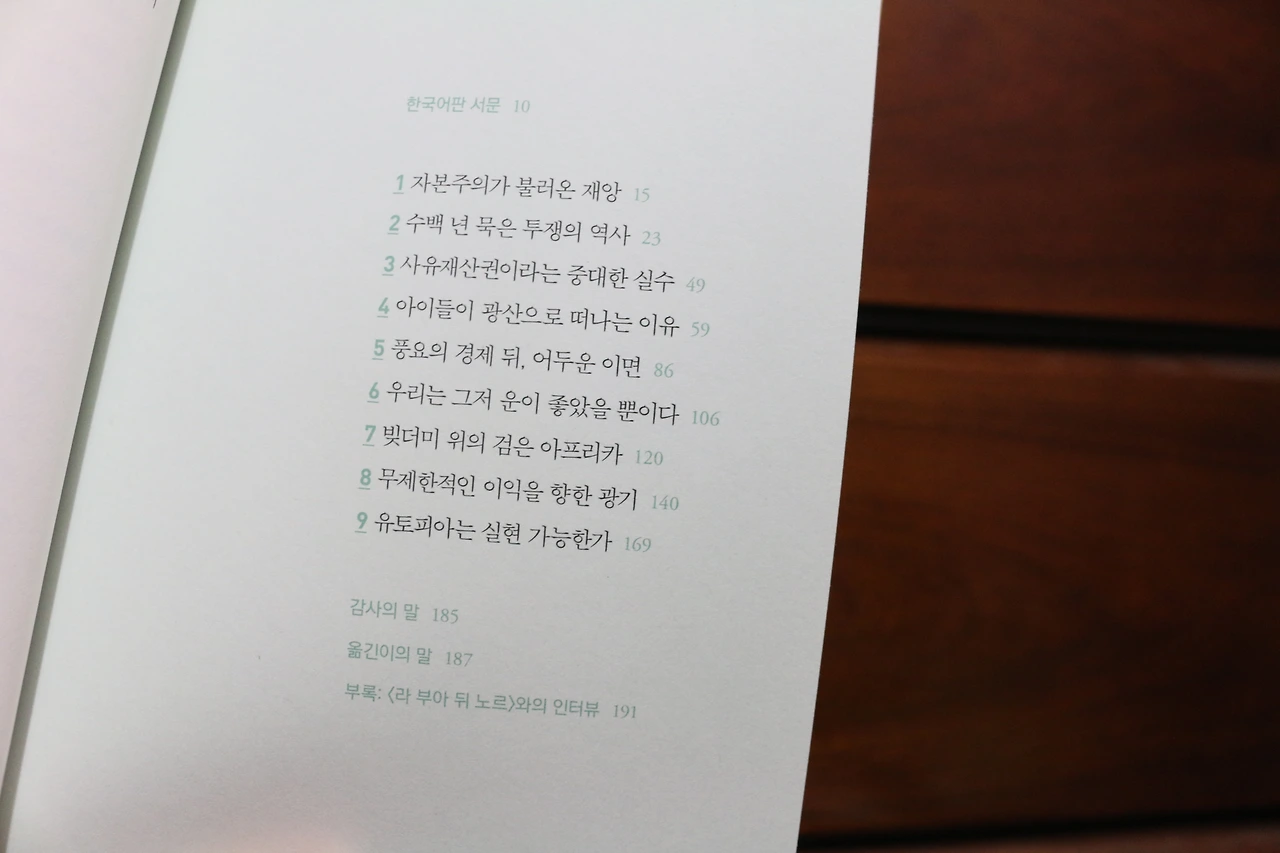 한국어판 서문 10
1 자본주의가 불러온 재앙 15
2 수백 년 묵은 투쟁의 역사 23
3 사유재산권이라는 중대한 실수 49
4 아이들이 광산으로 떠나는 이유 59
5 풍요의 경제 뒤, 어두운 이면 86
6 우리는 그저 운이 좋았을 뿐이다 106
7 빚더미 위의 검은 아프리카 120
8 무제한적인 이익을 향한 광기 140
9 유토피아는 실현 가능한가 169
감사의 말 185
옮긴이의 말 187
부록: 〈라 부아 뒤 노르〉와의 인터뷰 191